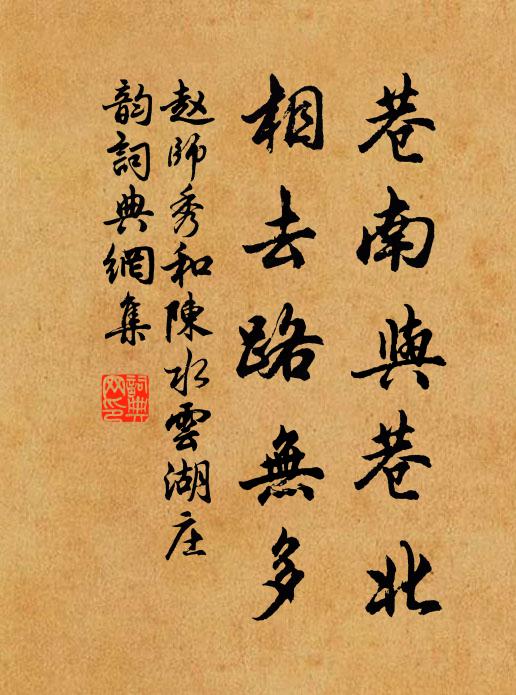 巷南與巷北
相去路無多
赵師秀和陳水雲湖庄
韵詞典網集
詞典網印